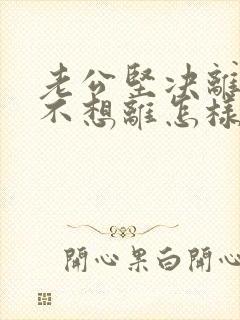 老公堅決離
不想離怎樣
開心果白開心